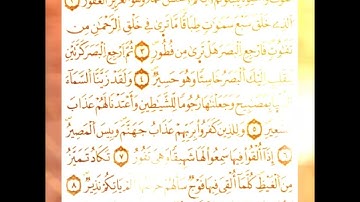 الَّذِى خَلَقَ سَبْعَ سَمَٰوَٰتٍ طِبَاقًا مَّا تَرَىٰ فِى خَلْقِ الرَّحْمَٰنِ مِن
تَفَٰوُتٍ فَارْجِعِ الْبَصَرَ هَلْ تَرَىٰ مِن فُطُورٍ ٣ ثُمَّ ارْجِعِ الْبَصَرَ كَرَّتَيْنِ
يَنقَلِبْ إِلَيْكَ الْبَصَرُ خَاسِئًا وَهُوَ حَسِيرٌ ٤ وَلَقَدْ زَيَّنَّا السَّمَآءَ
بِمَصَٰبِيحَ وَجَعَلْنَٰهَا رُجُومًا لِّلشَّيَٰطِينِ وَأَعْتَدْنَا لَهُمْ عَذَابَ
السَّعِيرِ ٥ وَلِلَّذِينَ كَفَرُوا بِرَبِّهِمْ عَذَابُ جَهَنَّمَ وَبِئْسَ الْمَصِيرُ
٦ إِذَآ أُلْقُوا فِيهَا سَمِعُوا لَهَا شَهِيقًا وَهِىَ تَفُورُ ٧ تَكَادُ تَمَيَّزُ
مِنَ الْغَيْظِ كُلَّمَآ أُلْقِىَ فِيهَا فَوْجٌ سَأَلَهُمْ خَزَنَتُهَآ أَلَمْ يَأْتِكُمْ نَذِيرٌ ٨